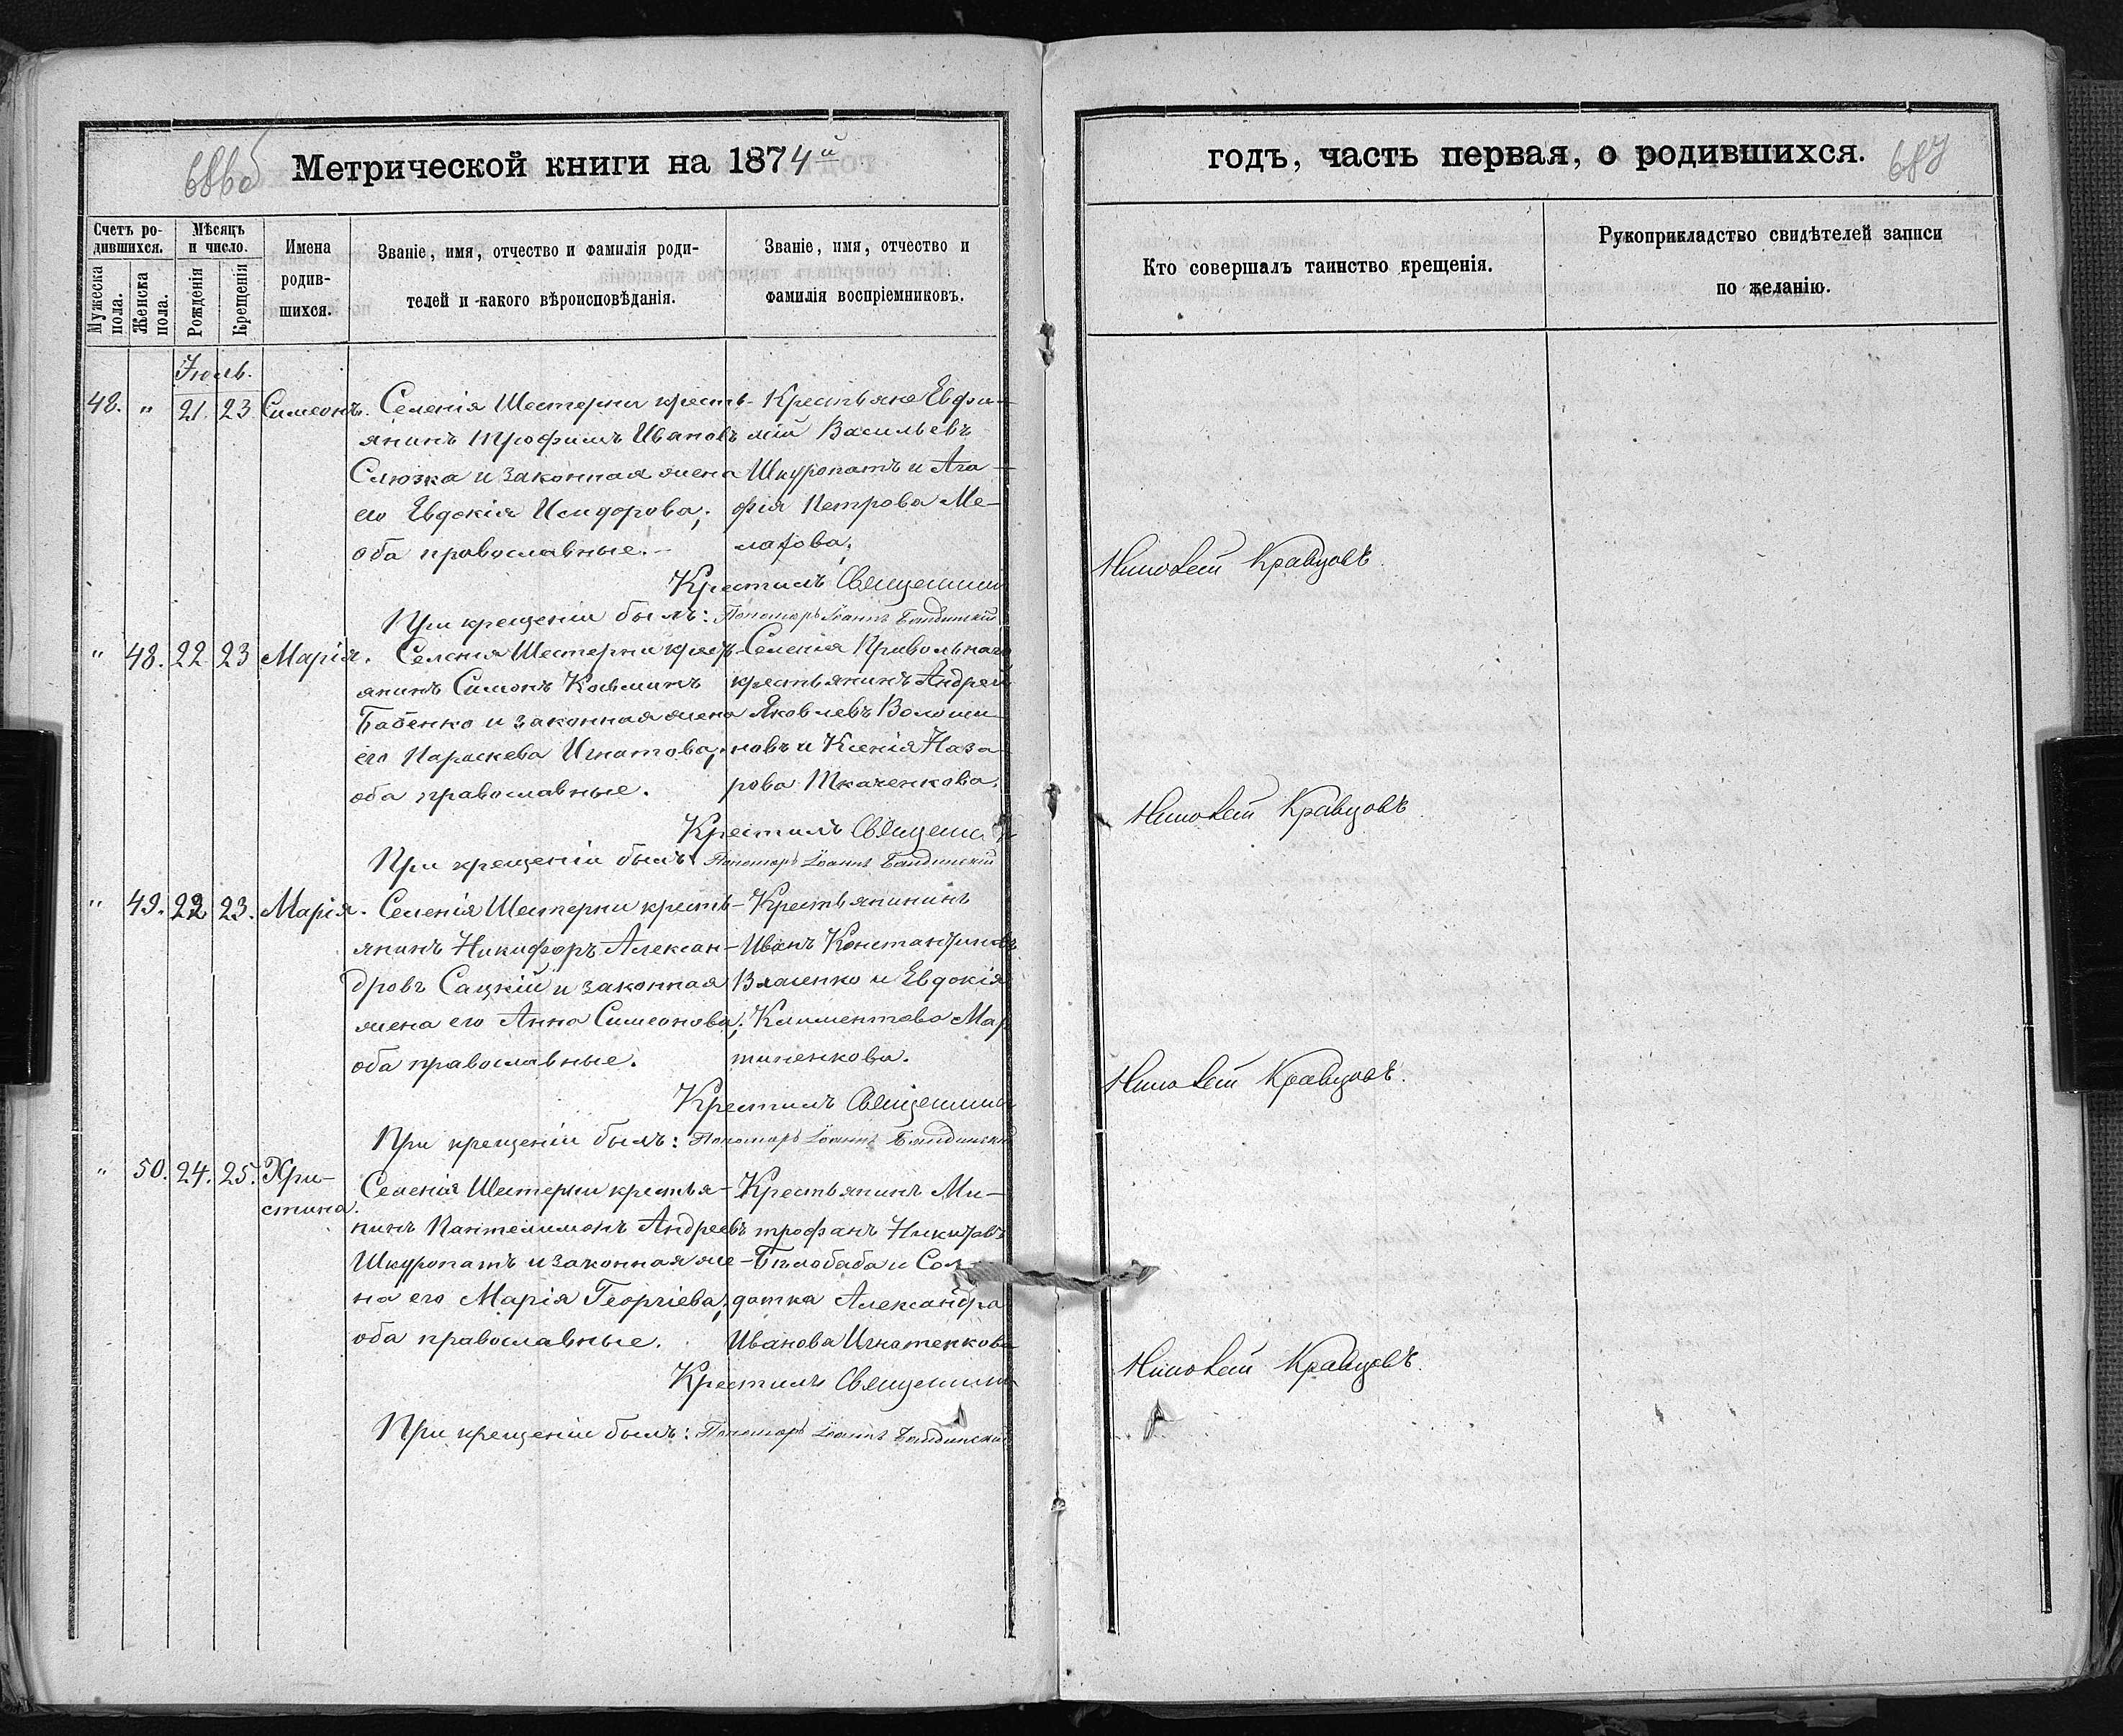 686об
Метрической книги на 1874й
годъ, часть первая, о родившихся.
687
Счетъ родившихся.
Мужеска пола.
Женска пола.
Мѣсяцъ и число.
Рожденія
Крещенія
Имена родившихся.
Званіе, имя, отчество и фамилія роди-
телей и какого вѣроисповѣданія.
Званіе, имя, отчество и
фамилія воспріемниковъ.
Кто совершалъ таинство крещенія.
Рукоприкладство свидѣтелей записи
по желанію.
Іюль.
48. " 21. 23. Симеонъ.
Селенія Шестерни кресть-
янинъ Трофимъ Ивановъ
Слюзка и законная жена
его Евдокія Исидорова;
оба православные.
Крестьяне Евфи-
мій Васильевъ
Шкуропатъ и Ага-
фія Петрова Ме-
Крестилъ Священник
Кравцовъ.
При крещеніи былъ: Пономарь Іоаннъ
" 48. 22. 23 Марія.
Селенія Шестерни крест-
янинъ Симонъ Козьминъ
Бабенко и законная жена
его Параскева Игнатова;
оба православные.
Селенія Привольнаго
крестьянинъ Андрей
Яковлевъ Волоши-
новъ и Ксенія Наза-
рова Ткаченкова.
Крестилъ Священ
Кравцовъ
При крещеніи былъ: Пономарь Іоаннъ
" 49. 22 23. Марія.
Селенія Шестерни кресть-
янинъ Никифоръ Алексан-
дровъ Сацкій и законная
жена его Анна Симеонова;
оба православные.
Крестьянинъ
Иванъ Константиновъ
Власенко и Евдокія
Климентова Мар
тиненкова.
Крестилъ Священник
Кравцовъ.
При крещеніи былъ: Пономарь Іоаннъ
" 50. 24. 25. Хри-
стина.
Селенія Шестерни крестья-
нинъ Пантелимонъ Андреевъ
Шкуропатъ и законная же-
на его Марія Георгіева;
оба православные.
Крестьянинъ Ми-
трофанъ Никитовъ
Бѣлобаба и Сол-
датка Александра
Иванова Игнатенкова
Крестилъ Священник
Кравцовъ.
При крещеніи былъ: Пономарь Іоаннъ